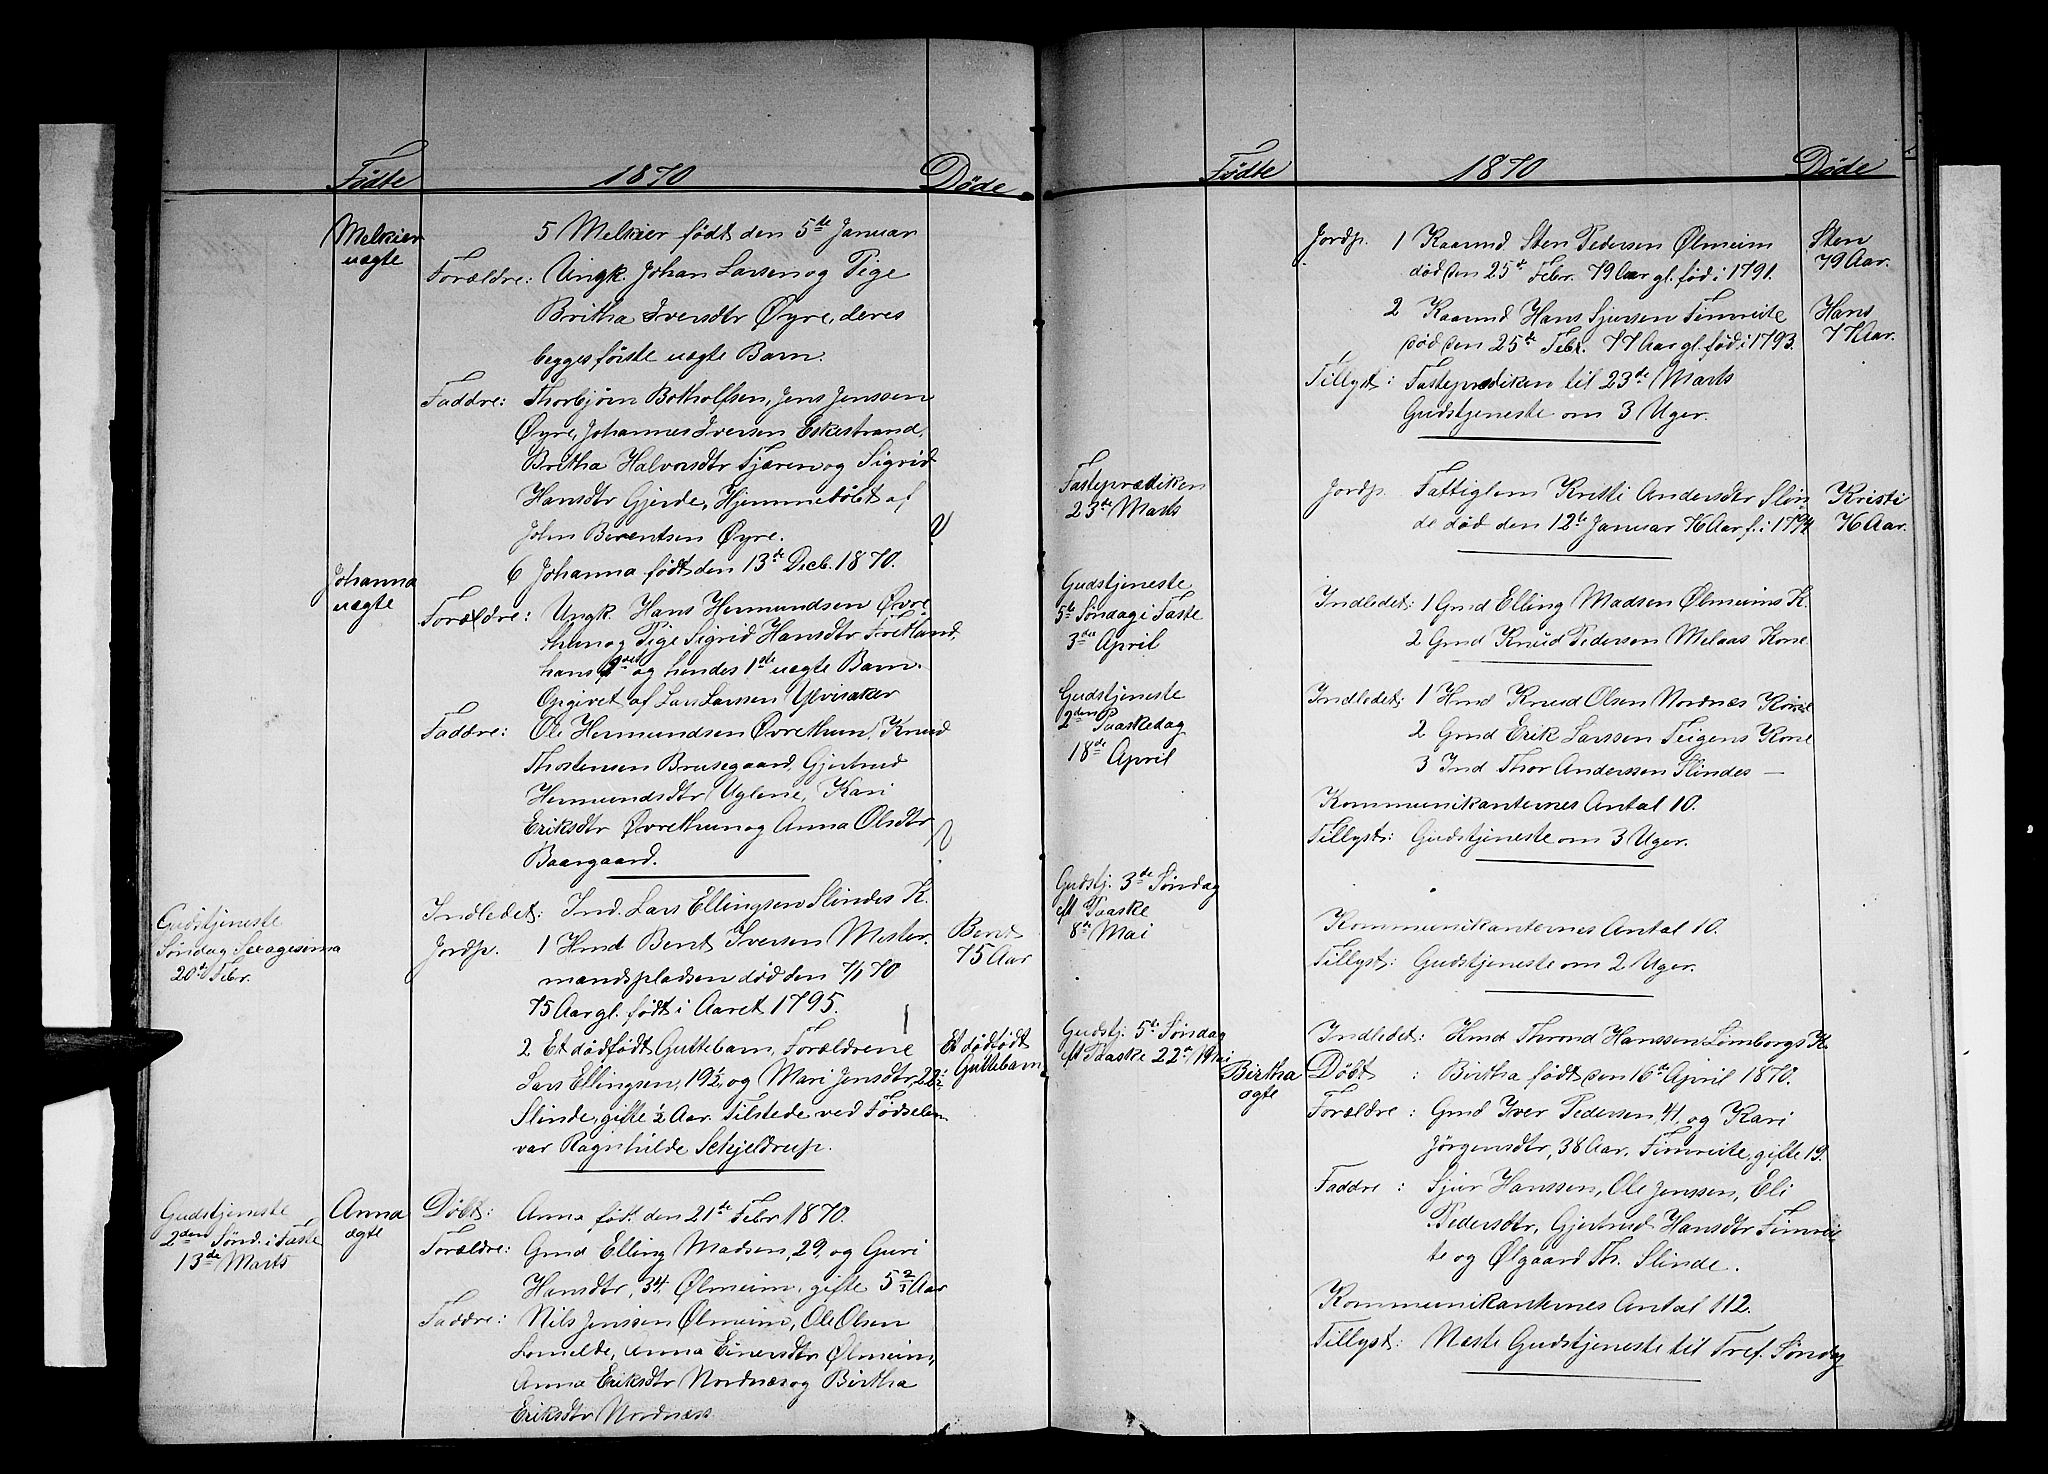 Fødte 1870 Døde
Melkier
uægte
5 Melkier født den 5te Januar
Forældre: Ungk. Johan Larsen og Pige
Britha Iversdtr Øyre, deres
begges første uægte Barn.
Faddre: Thorbjörn Botholfsen, Jens Jenssen
Øyre, Johannes Iversen Eskestrand,
Britha Halvorsdtr Fjæren og Sigrid
Hansdtr Gjerde, Hjemmedöbt af
John Berentsen Øyre.
Johanna
uægte
6 Johanna født den 13de Decb. 1870.
Forældre: Ungk. Hans Hermundsen Øvre
thun og Pige Sigrid Hansdtr Fretland,
hans og hendes 1ste uægte Barn.
Opgivet af Lars Larssen Ylvisaker
Faddre: Ole Hermundsen Øvrethun, Knud
Thostensen Brusegaard, Gjertrud
Hermundsdtr Uglene, Kari
Eriksdtr Øvrethun og Anna Olsdtr
Baargaard.
Gudstjeneste
Søndag Sexagesima
20de Febr.
Indledet: Ind. Lars Ellingsen Slindes K.
Jordp. 1 Hmd Bent Iversen Mester-
mandspladsen død den 7/1 70
75 Aar gl. født i Aaret 1795.
Bent
75 Aar
2 Et dødfødt Guttebarn, Forældrene
Lars Ellingsen, 19½, og Mari Jensdtr, 22½
Slinde, gifte ½ Aar. Tilstede ved Fødselen
var Ragnhilde Schjeldrup.
Et dødfødt
Guttebarn
Gudstjeneste
2den Sønd. i Faste
13de Marts
Anna
ægte
Døbt: Anna fød. den 21de Febr 1870.
Forældre: Gmd Elling Madsen, 29, og Guri
Hansdtr, 34, Ølmeim, gifte 5 Aar
Faddre: Nils Jenssen Ølmeim, Ole Olsen
Lomelde, Anna Einersdtr Ølmeim,
Anna Eriksdtr Nordnæs og Birtha
Eriksdtr Nordnæss.
Fødte 1870 Døde
Jordp. 1 Kaarmd. Sten Pedersen Ølmeim
død den 25de Febr. 79 Aar gl. fød i 1791.
Sten
79 Aar.
2 Kaarmd Hans Sjursen Fimreite
død den 25de Febr. 77 Aar gl. fød i 1793.
Hans
77 Aar.
Tillyst: Fasteprædiken til 23de Marts
Gudstjeneste om 3 Uger.
Fasteprædiken
23de Marts
Jordp. Fattiglem Kristi Andersdtr Slin-
de død den 12te Januar 76 Aar f. i 1794.
Kristi
76 Aar.
Gudstjeneste
5te Søndag i Faste
3die April
Indledet: 1 Gmd Elling Madsen Ølmeims K.
2 Gmd Knud Pedersen Melaas Kone
Gudstjeneste
2den Paaskedag
18de April
Indledet: 1 Hmd Knud Olsen Nordnes Kone
2 Gmd Erik Larssen Teigens Kone
3 Ind Thor Anderssen Slindes —
Kommunikanternes Antal 10.
Tillyst: Gudstjeneste om 3 Uger.
Gudstj. 3de Søndag
eft Paaske
8de Mai
Kommunikanternes Antal 10.
Tillyst: Gudstjeneste om 2 Uger.
Gudstj. 5te Søndag
eft Paaske 22de Mai
Indledet: Hmd Thrond Hanssen Lömborgs K.
Birtha
ægte
Döbt : Birtha født den 16de April 1870.
Forældre : Gmd Iver Pedersen, 41, og Kari
Jörgensdtr, 38 Aar, Fimreite, gifte 19.
Faddre : Sjur Hanssen, Ole Jenssen, Eli
Pedersdtr, Gjertrud Hansdtr Fimrei-
te og Ølgaard Th. Slinde.
Kommunikanternes Antal 112.
Tillyst: Næste Gudstjeneste til Tref. Søndag